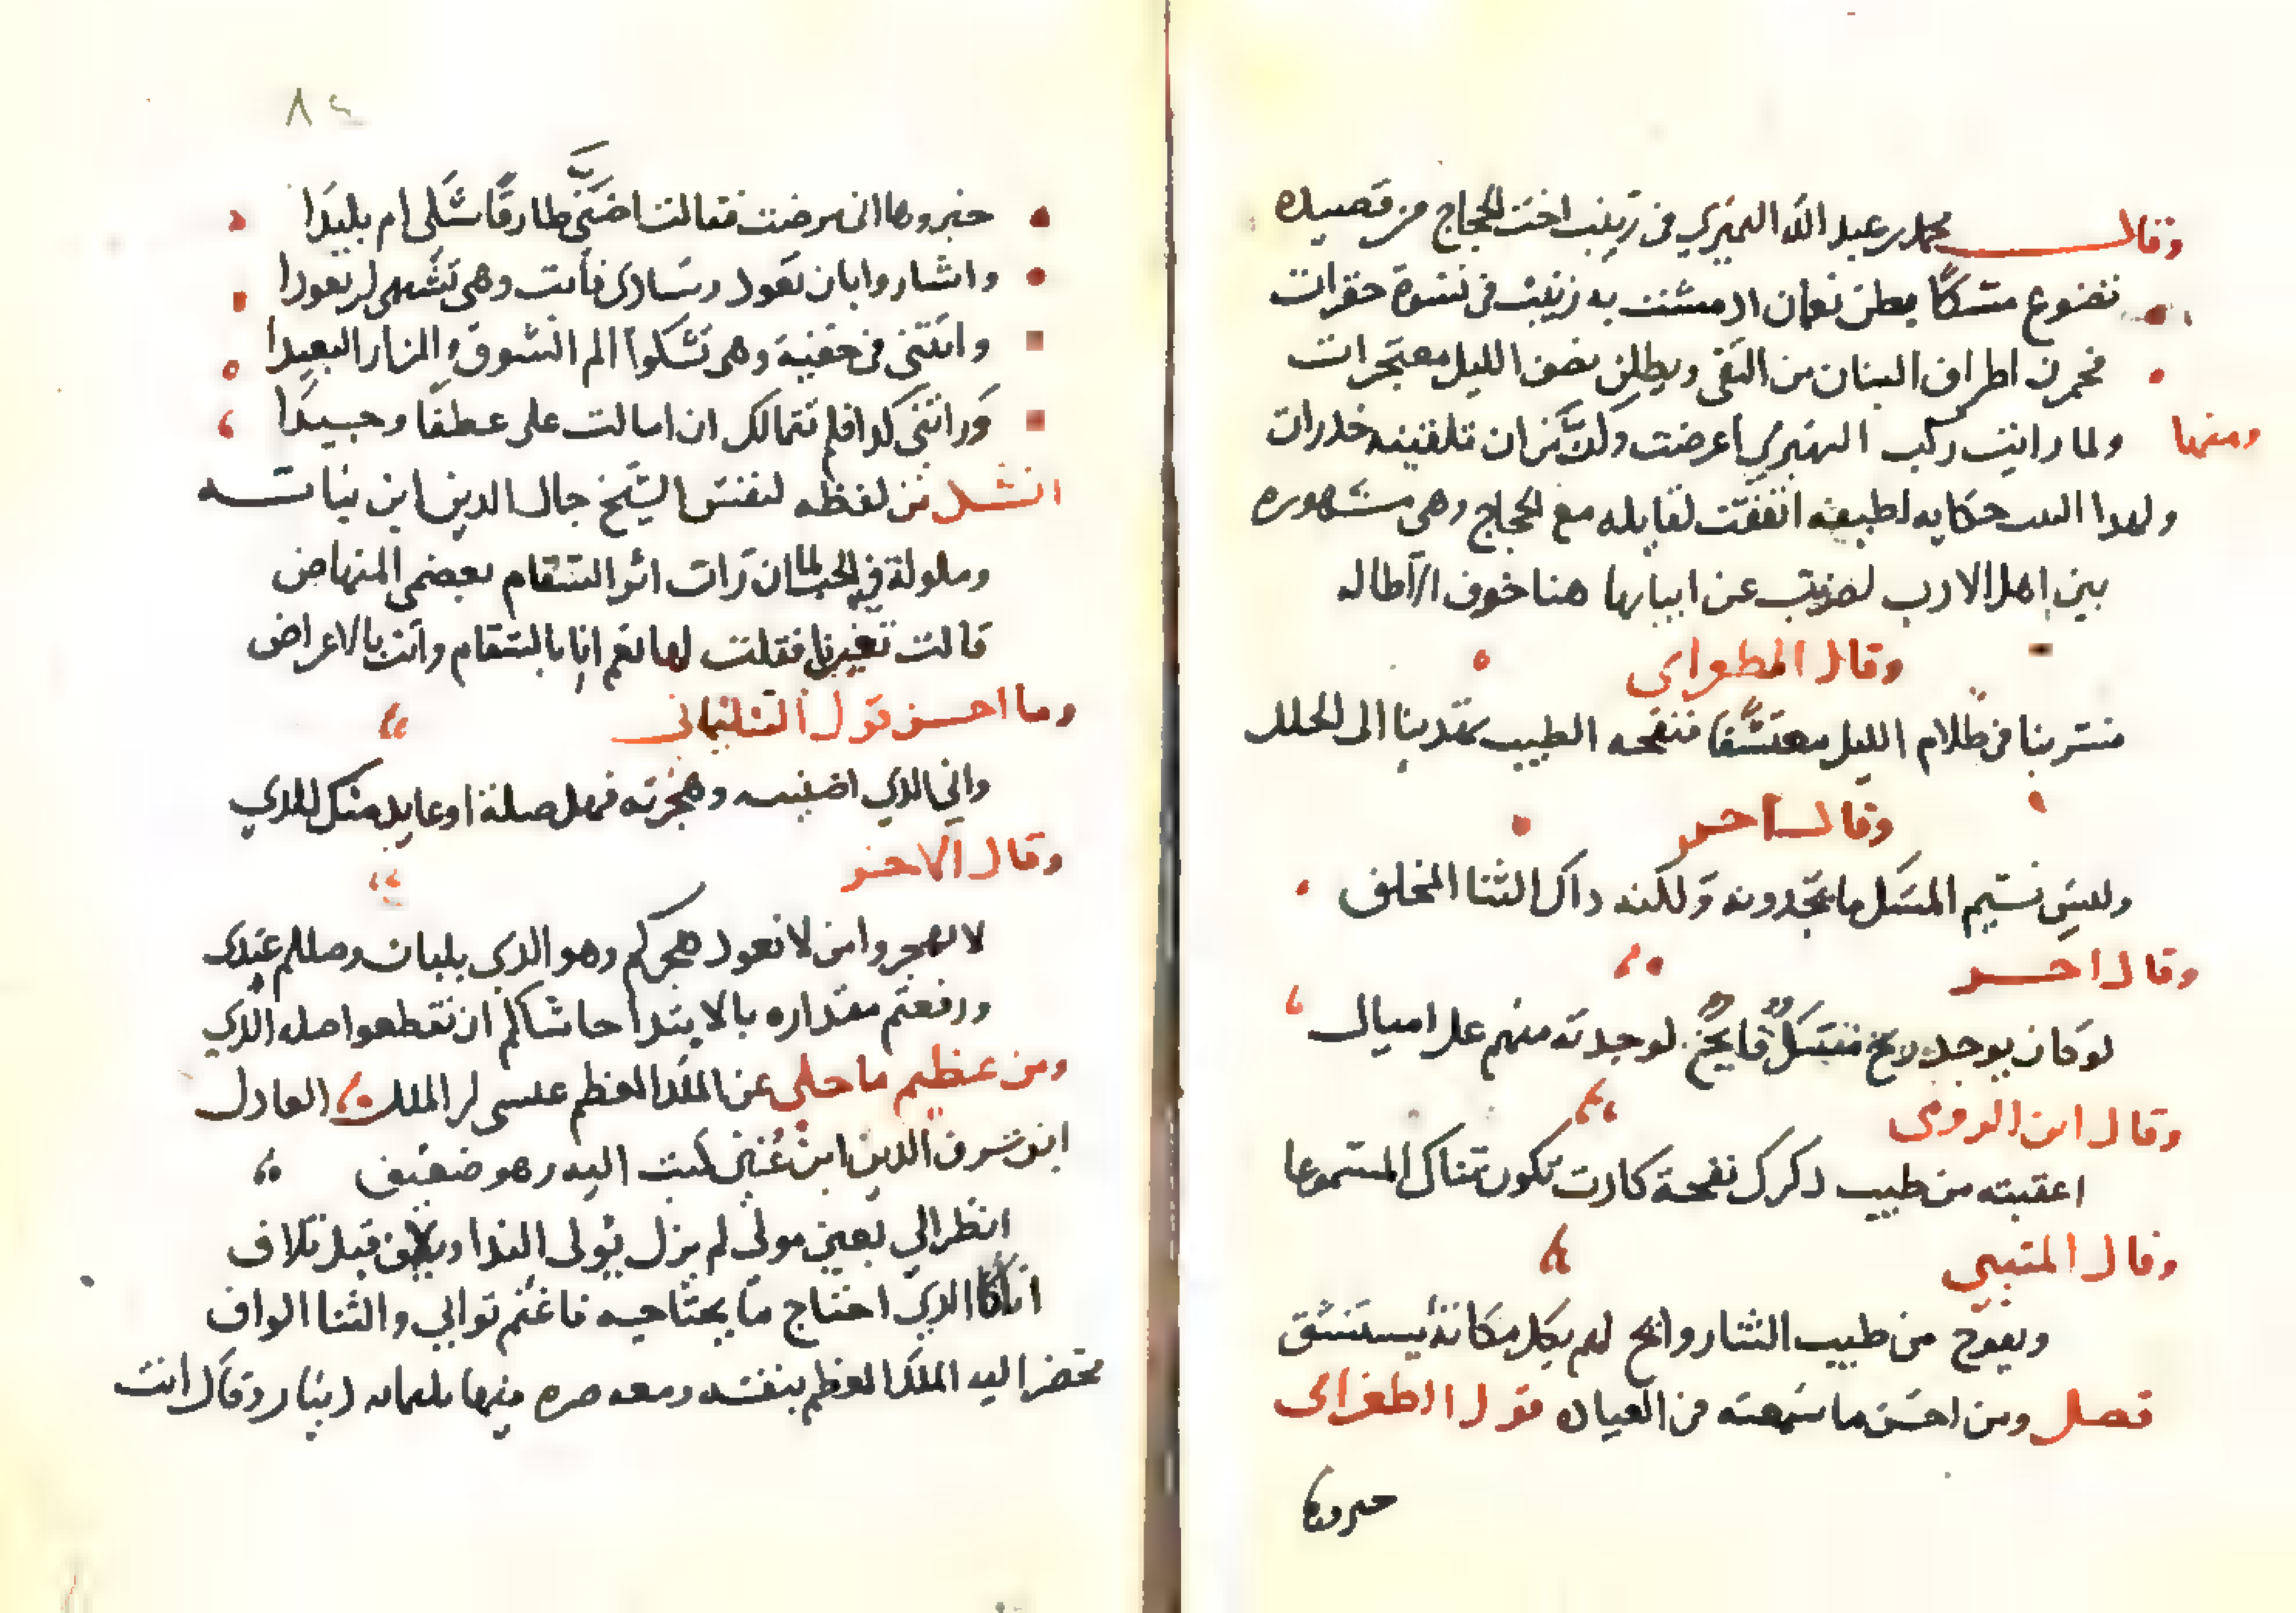 وقال محمد بن عبد الله النميري في زينب اخت الحجاج من قصيده
تضوع مسكا بطن نعمان اذ مشت به زينب في نسوة خفرات
يخمرن اطراف البنان من التقى ويطلن نصف الليل معتجرات
ومنها ولما رايت ركب النميري اعرضت وكن من ان تلقينه حذرات
ولهدا البيت حكايه لطيفه اتفقت لقايله مع الحجاج وهي مشهوره
بين اهل الادب اضربت عن اتيانها هنا خوف الاطاله
وقال الطغراي
فسر بنا في ظلام الليل معتسفا فنفحه الطيب تهدينا الى الحلل
وقال اخر
وليس نسيم المسك ما تجدونه ولكنه داك الثنا المخلف
وقال اخر
لو كان يوجد ريح مسك فايح لوجدته منهم على اميال
وقال ابن الرومي
اعقبته من طيب دكرك نفحة كادت تكون ثناك المسموعا
وقال المتنبي
ويفوح من طيب الثنا روايح لهم بكل مكانة يستنشق
فصل ومن احسن ما سمعته في العياده قول الطغراى
خبروها
٨٤
خبروها اني مرضت فقالت اضنى طارقا شكى ام تليدا
واشاروا بان تعود وسادى فابت وهي تشتهي ان تعودا
واتتني في خفية وهي تشكوا الم الشوق والمزار البعيدا
وراتني كدا فلم تتمالك ان امالت على عطفا وجيدا
انشدني لفظه لنفسه الشيخ جمال الدين ابن نباته
وملولة في الحب لما ان رات اثر السقام بعضمي المنهاض
قالت تغيرنا فقلت لها نعم انا بالسقام وانت بالاعراض
وما احسن قول التلمساني
واني الذي اضنيته وهجرته فهل صلة او عايد منك للذي
وقال الاخر
لا تهجروا من لا تعود هجركم وهو الذي بلبان وصلكم غدى
ورفعتم مقداره بالابتدا حاشاكم ان تقطعوا صله الذي
ومن عظيم ما حكي عن الملك المعظم عيسى بن الملك العادل
ابن شرف الدين ابن عنين كتب اليه وهو ضعيف
انظر الي بعين مولى لم يزل يولى الندا وتلاف قبل تلاف
انا كالذي احتاج ما يحتاجه فاغنم ثوابي والثنا الواف
فحضر اليه الملك المعظم بنفسه ومعه صره فيها ثلثمايه دينار وقال انت